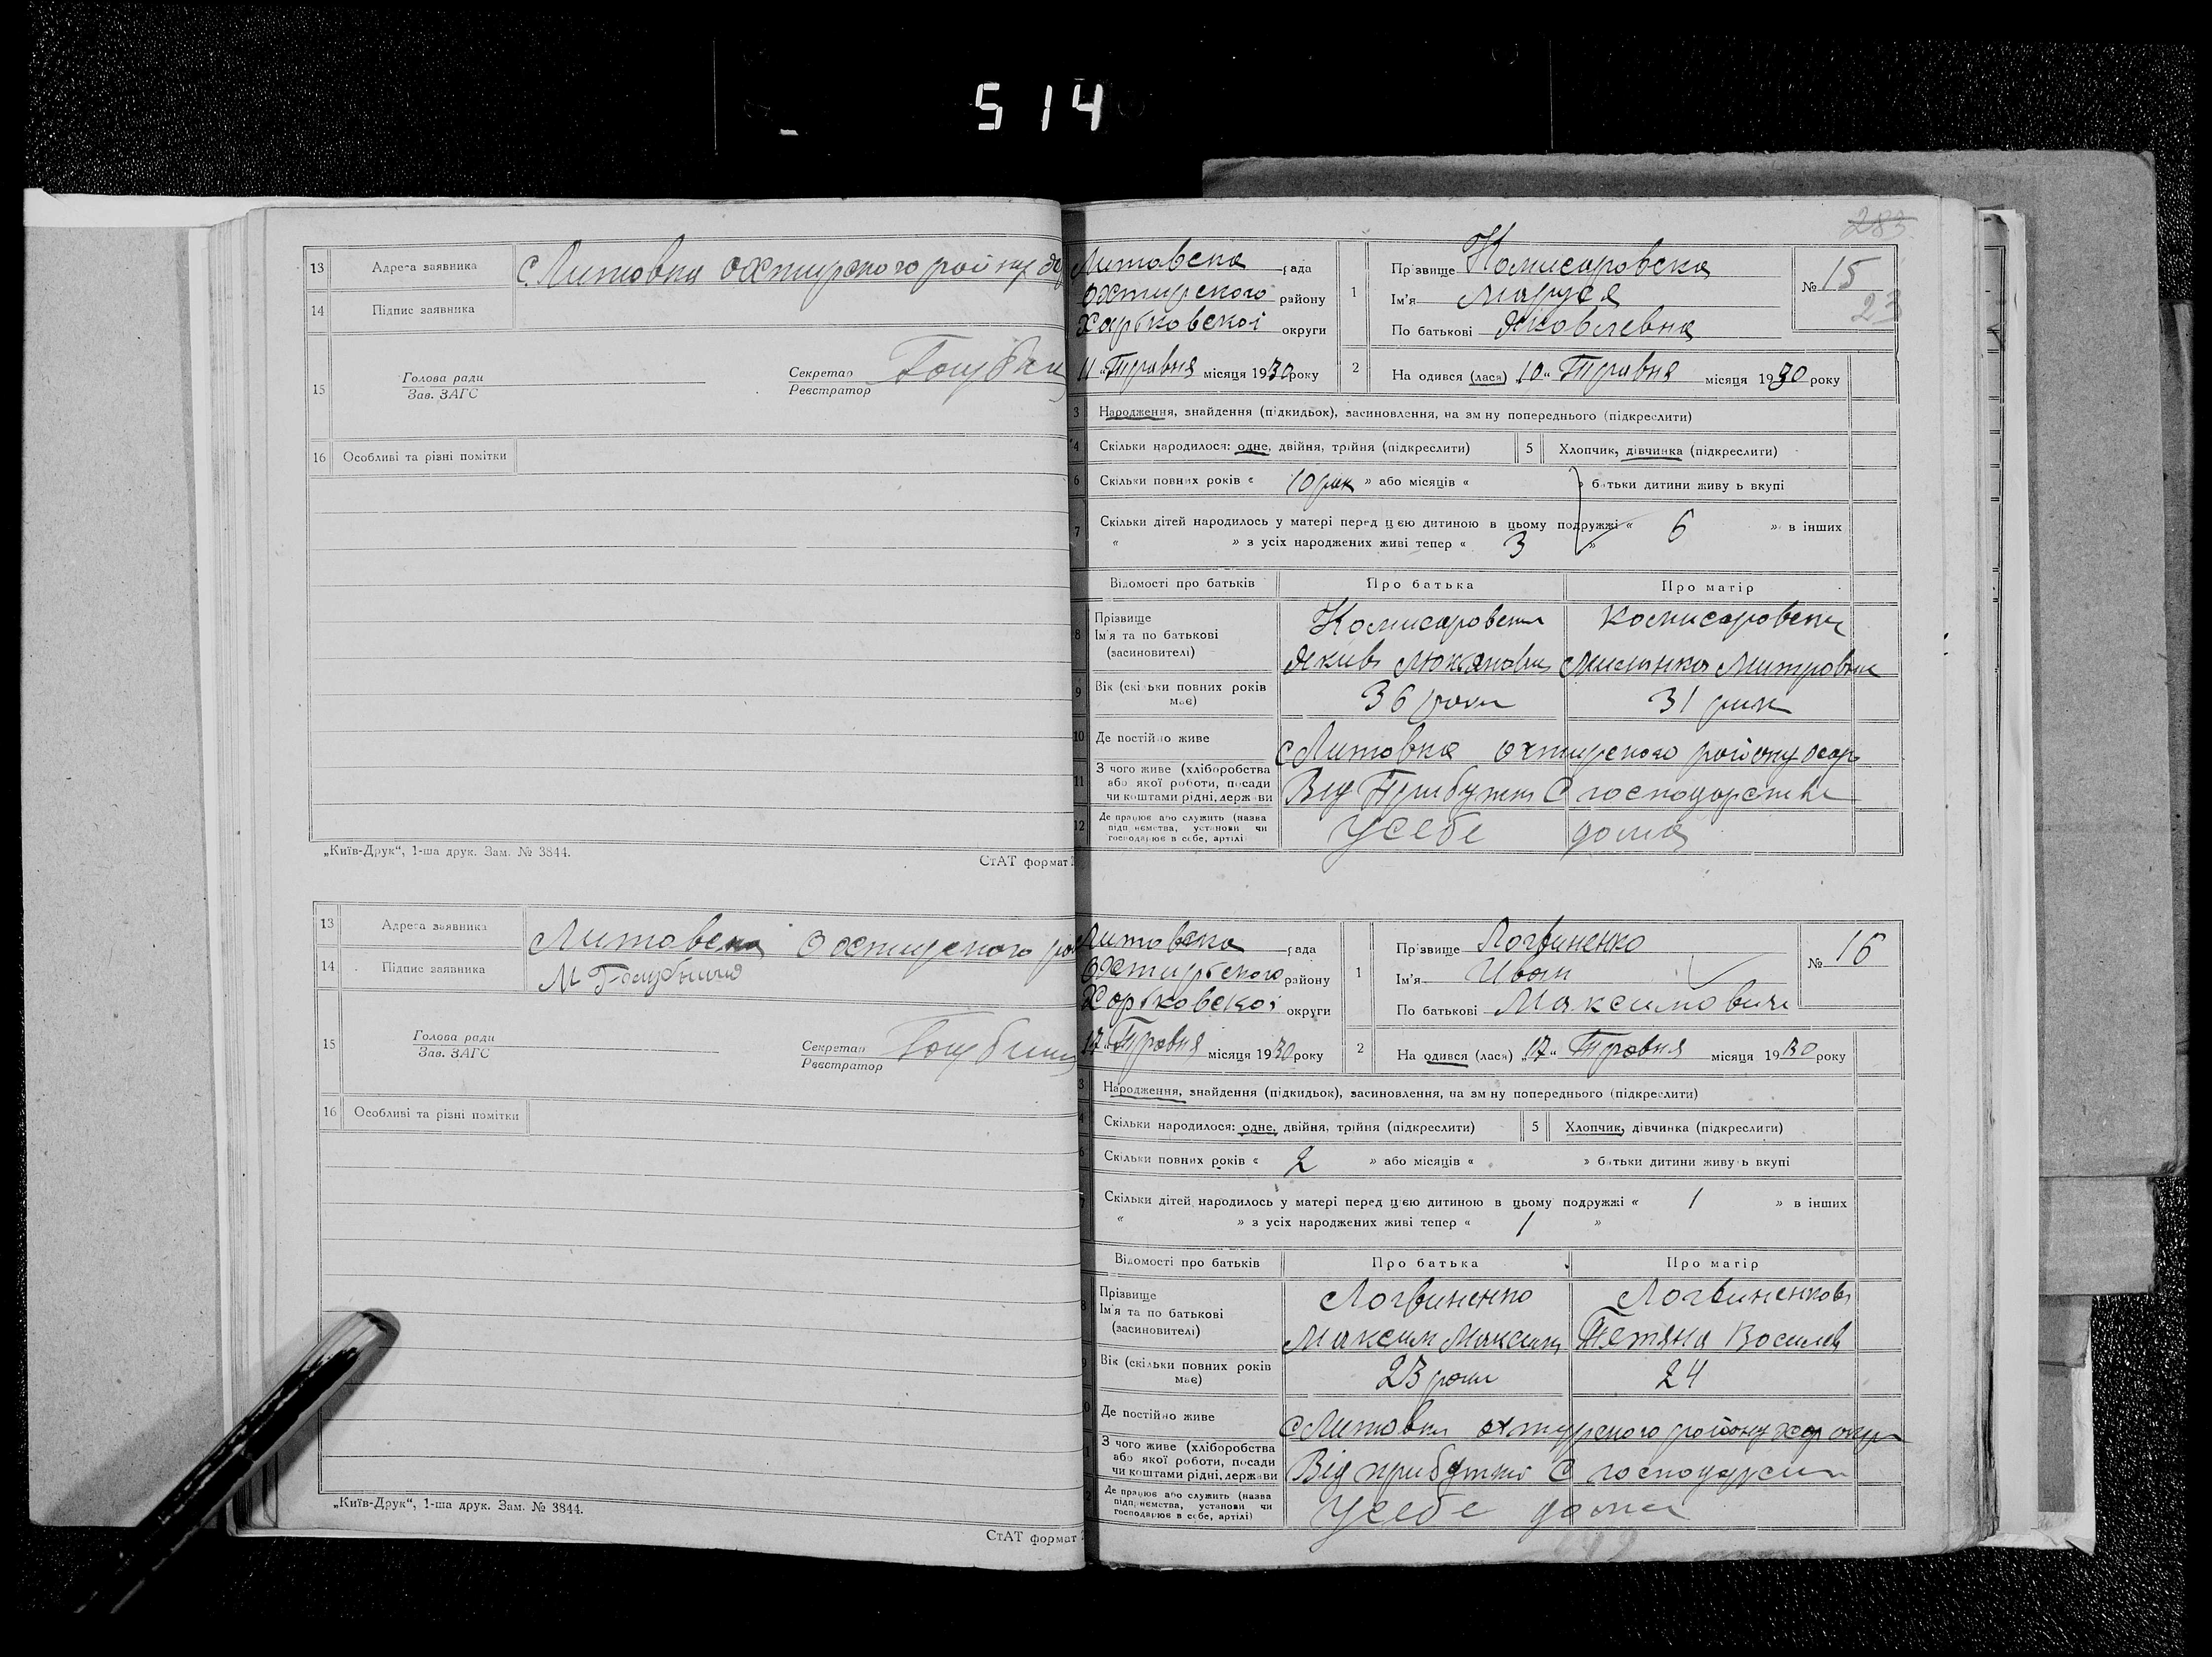 514
13 Адреса заявника с Литовка Охтирского району
14 Підпис заявника
15 Голова ради
Зав. ЗАГС
Секретар
Реєстратор
16 Особливі та різні помітки
„Київ-Друк“, 1-ша друк. Зам. № 3844.
СтАТ формат
13 Адреса заявника Литовска Охтирского
14 Підпис заявника М Голубничий
15 Голова ради
Зав. ЗАГС
Секретар
Реєстратор
16 Особливі та різні помітки
„Київ-Друк“, 1-ша друк. Зам. № 3844.
СтАТ формат
283
Литовска рада
Охтирского району
Харьковскоі округи
11 „Травня місяця 1930 року
1 Прізвище Комисаровска
Ім'я Маруся
По батькові Яковлевна
№ 15
23
2 Народився (лася) „10“ Травня місяця 1930 року
3 Народження, знайдення (підкидьок), засиновлення, на зміну попереднього (підкреслити)
4 Скільки народилося: одне, двійня, трійня (підкреслити) 5 Хлопчик, дівчинка (підкреслити)
6 Скільки повних років « 10 рик » або місяців « » батьки дитини живуть вкупі
7 Скільки дітей народилось у матері перед цією дитиною в цьому подружжі « 6 » в інших
« » з усіх народжених живі тепер « 3 »
Відомості про батьків Про батька Про матір
8 Прізвище
Ім'я та по батькові
(засиновителі)
Комисаровски Комисаровска
Якив Митровна
9 Вік (скільки повних років має) 36 роки 31 рик
10 Де постійно живе с Литовка охтирского району хар
11 З чого живе (хліборобства
або якої роботи, посади
чи коштами рідні, держави
Від Прибутки С господарства
12 Де працює або служить (назва
підприємства, установи чи
господарює в себе, артілі)
Усебе дома
Литовска рада
Охтирьского району
Харьковскоі округи
17 „Травня місяця 1930 року
1 Прізвище Логвиненко
Ім'я Иван
По батькові Максимович
№ 16
2 Народився (лася) „17“ Травня місяця 1930 року
3 Народження, знайдення (підкидьок), засиновлення, на зміну попереднього (підкреслити)
4 Скільки народилося: одне, двійня, трійня (підкреслити) 5 Хлопчик, дівчинка (підкреслити)
6 Скільки повних років « 2 » або місяців « » батьки дитини живуть вкупі
7 Скільки дітей народилось у матері перед цією дитиною в цьому подружжі « 1 » в інших
« » з усіх народжених живі тепер « 1 »
Відомості про батьків Про батька Про матір
8 Прізвище
Ім'я та по батькові
(засиновителі)
Логвиненко Логвиненкова
Максим Максим Тетяна Василев
9 Вік (скільки повних років має) 23 роки 24
Де постійно живе с Литовки охтирского району хар окру
З чого живе (хліборобства
або якої роботи, посади
чи коштами рідні, держави
Від прибутки С господарси
Де працює або служить (назва
підприємства, установи чи
господарює в себе, артілі)
Усебе дома